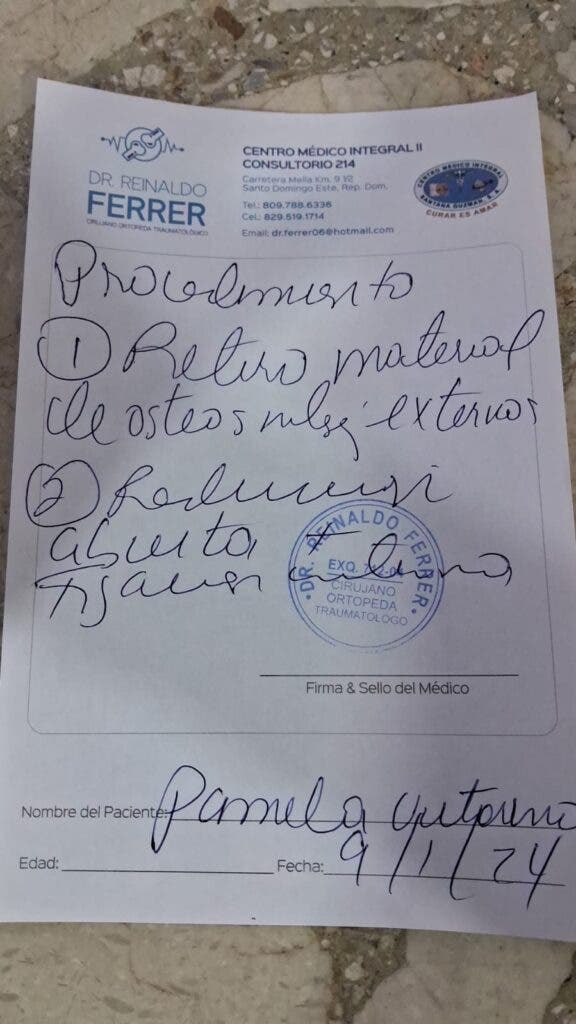 DR. REINALDO
FERRER
CIRUJANO ORTOPEDA TRAUMATOLÓGICO
CENTRO MÉDICO INTEGRAL II
CONSULTORIO 214
Carretera Mella Km. 9 1/2
Santo Domingo Este, Rep. Dom.
Tel.: 809.788.6336
Cel.: 829.519.1714
Email: dr.ferrer06@hotmail.com
CENTRO MÉDICO INTEGRAL
SANTANA GUZMAN, S.A.
CURAR ES AMAR
Procedimiento
① Retiro material
de externos
② Reduccion
abierta
Fijacion interna
DR. REINALDO FERRER
EXQ.
CIRUJANO
ORTOPEDA
TRAUMATOLOGO
Firma & Sello del Médico
Nombre del Paciente: Pamela
Edad:
Fecha: 9/1/24